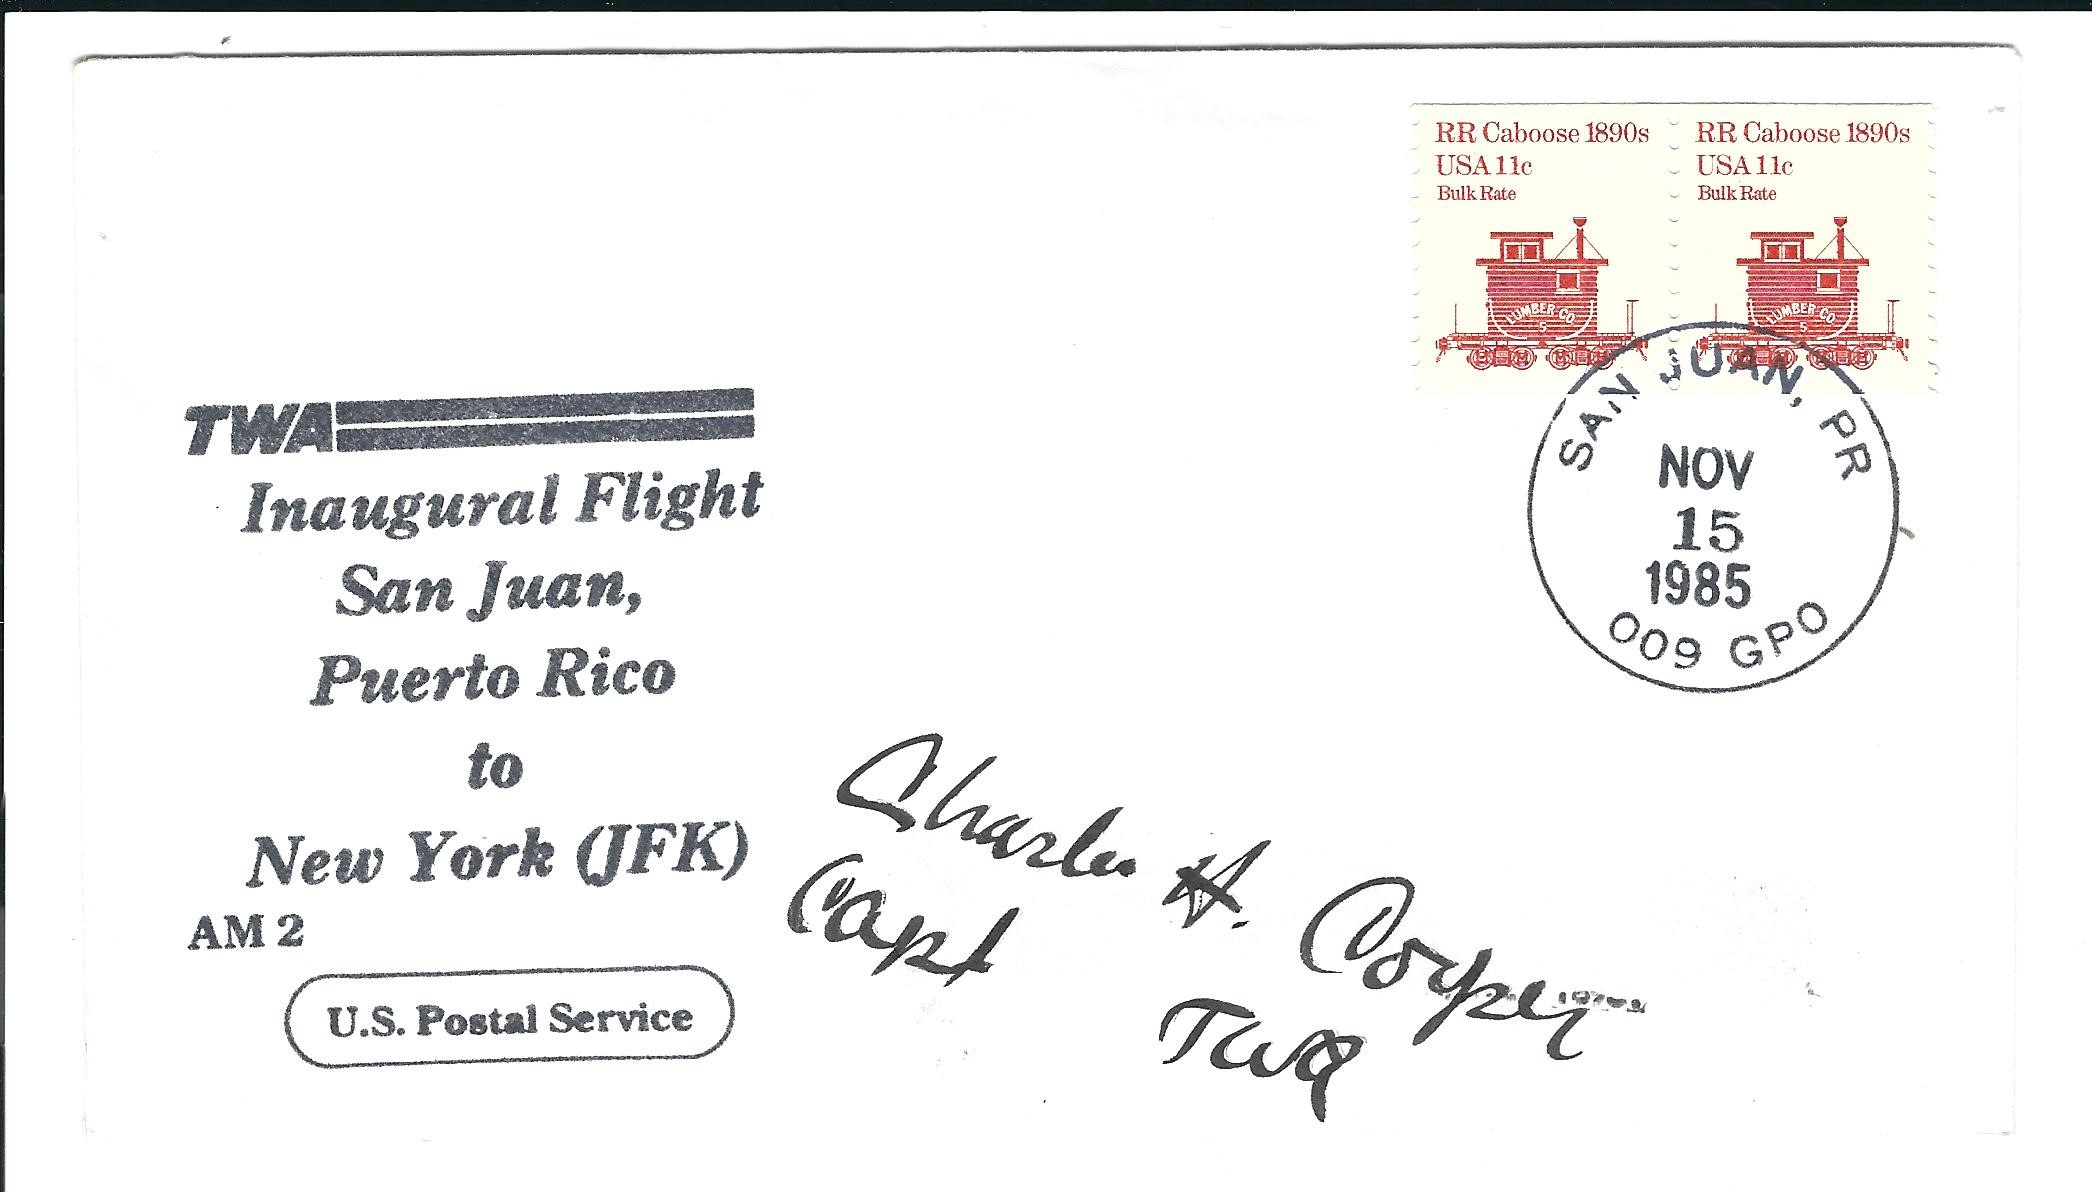 RR Caboose 1890s
USA 11c
Bulk Rate
LUMBER CO.
5
RR Caboose 1890s
USA 11c
Bulk Rate
LUMBER CO.
5
SAN JUAN, PR
NOV
15
1985
009 GPO
TWA
Inaugural Flight
San Juan,
Puerto Rico
to
New York (JFK)
AM 2
U.S. Postal Service
Charles H.
Capt
TWA